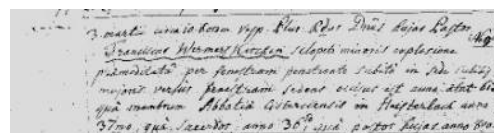 3 martii circa horam vesp. Plus. Rdus Dnus hujus Pastor
Franciscus Wermerskirchen sclopeti minoris explosione
præmeditatâ per fenestram penetrante subitò in sede
majoris versus fenestram sedens occisus est anno ætat. 61
quâ membrum Abbatiæ Cisterciensis in Heysterbach anno
37mo, quâ Sacerdos anno 36to, quâ pastor hujus anno 8vo.